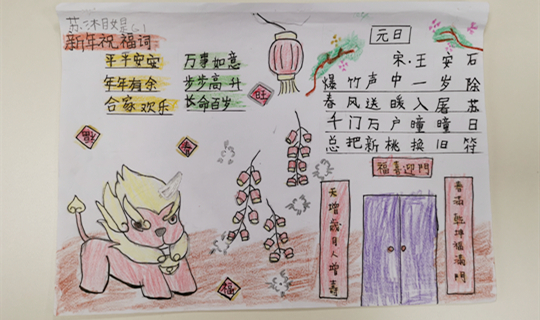 新年祝福词
平平安安
万事如意
年年有余
步步高升
合家欢乐
长命百岁
旺
福
元日
宋.王安石
爆竹声中一岁除
春风送暖入屠苏
千门万户曈曈日
总把新桃换旧符
福喜迎門
天增歲月人增壽
春滿乾坤福滿門